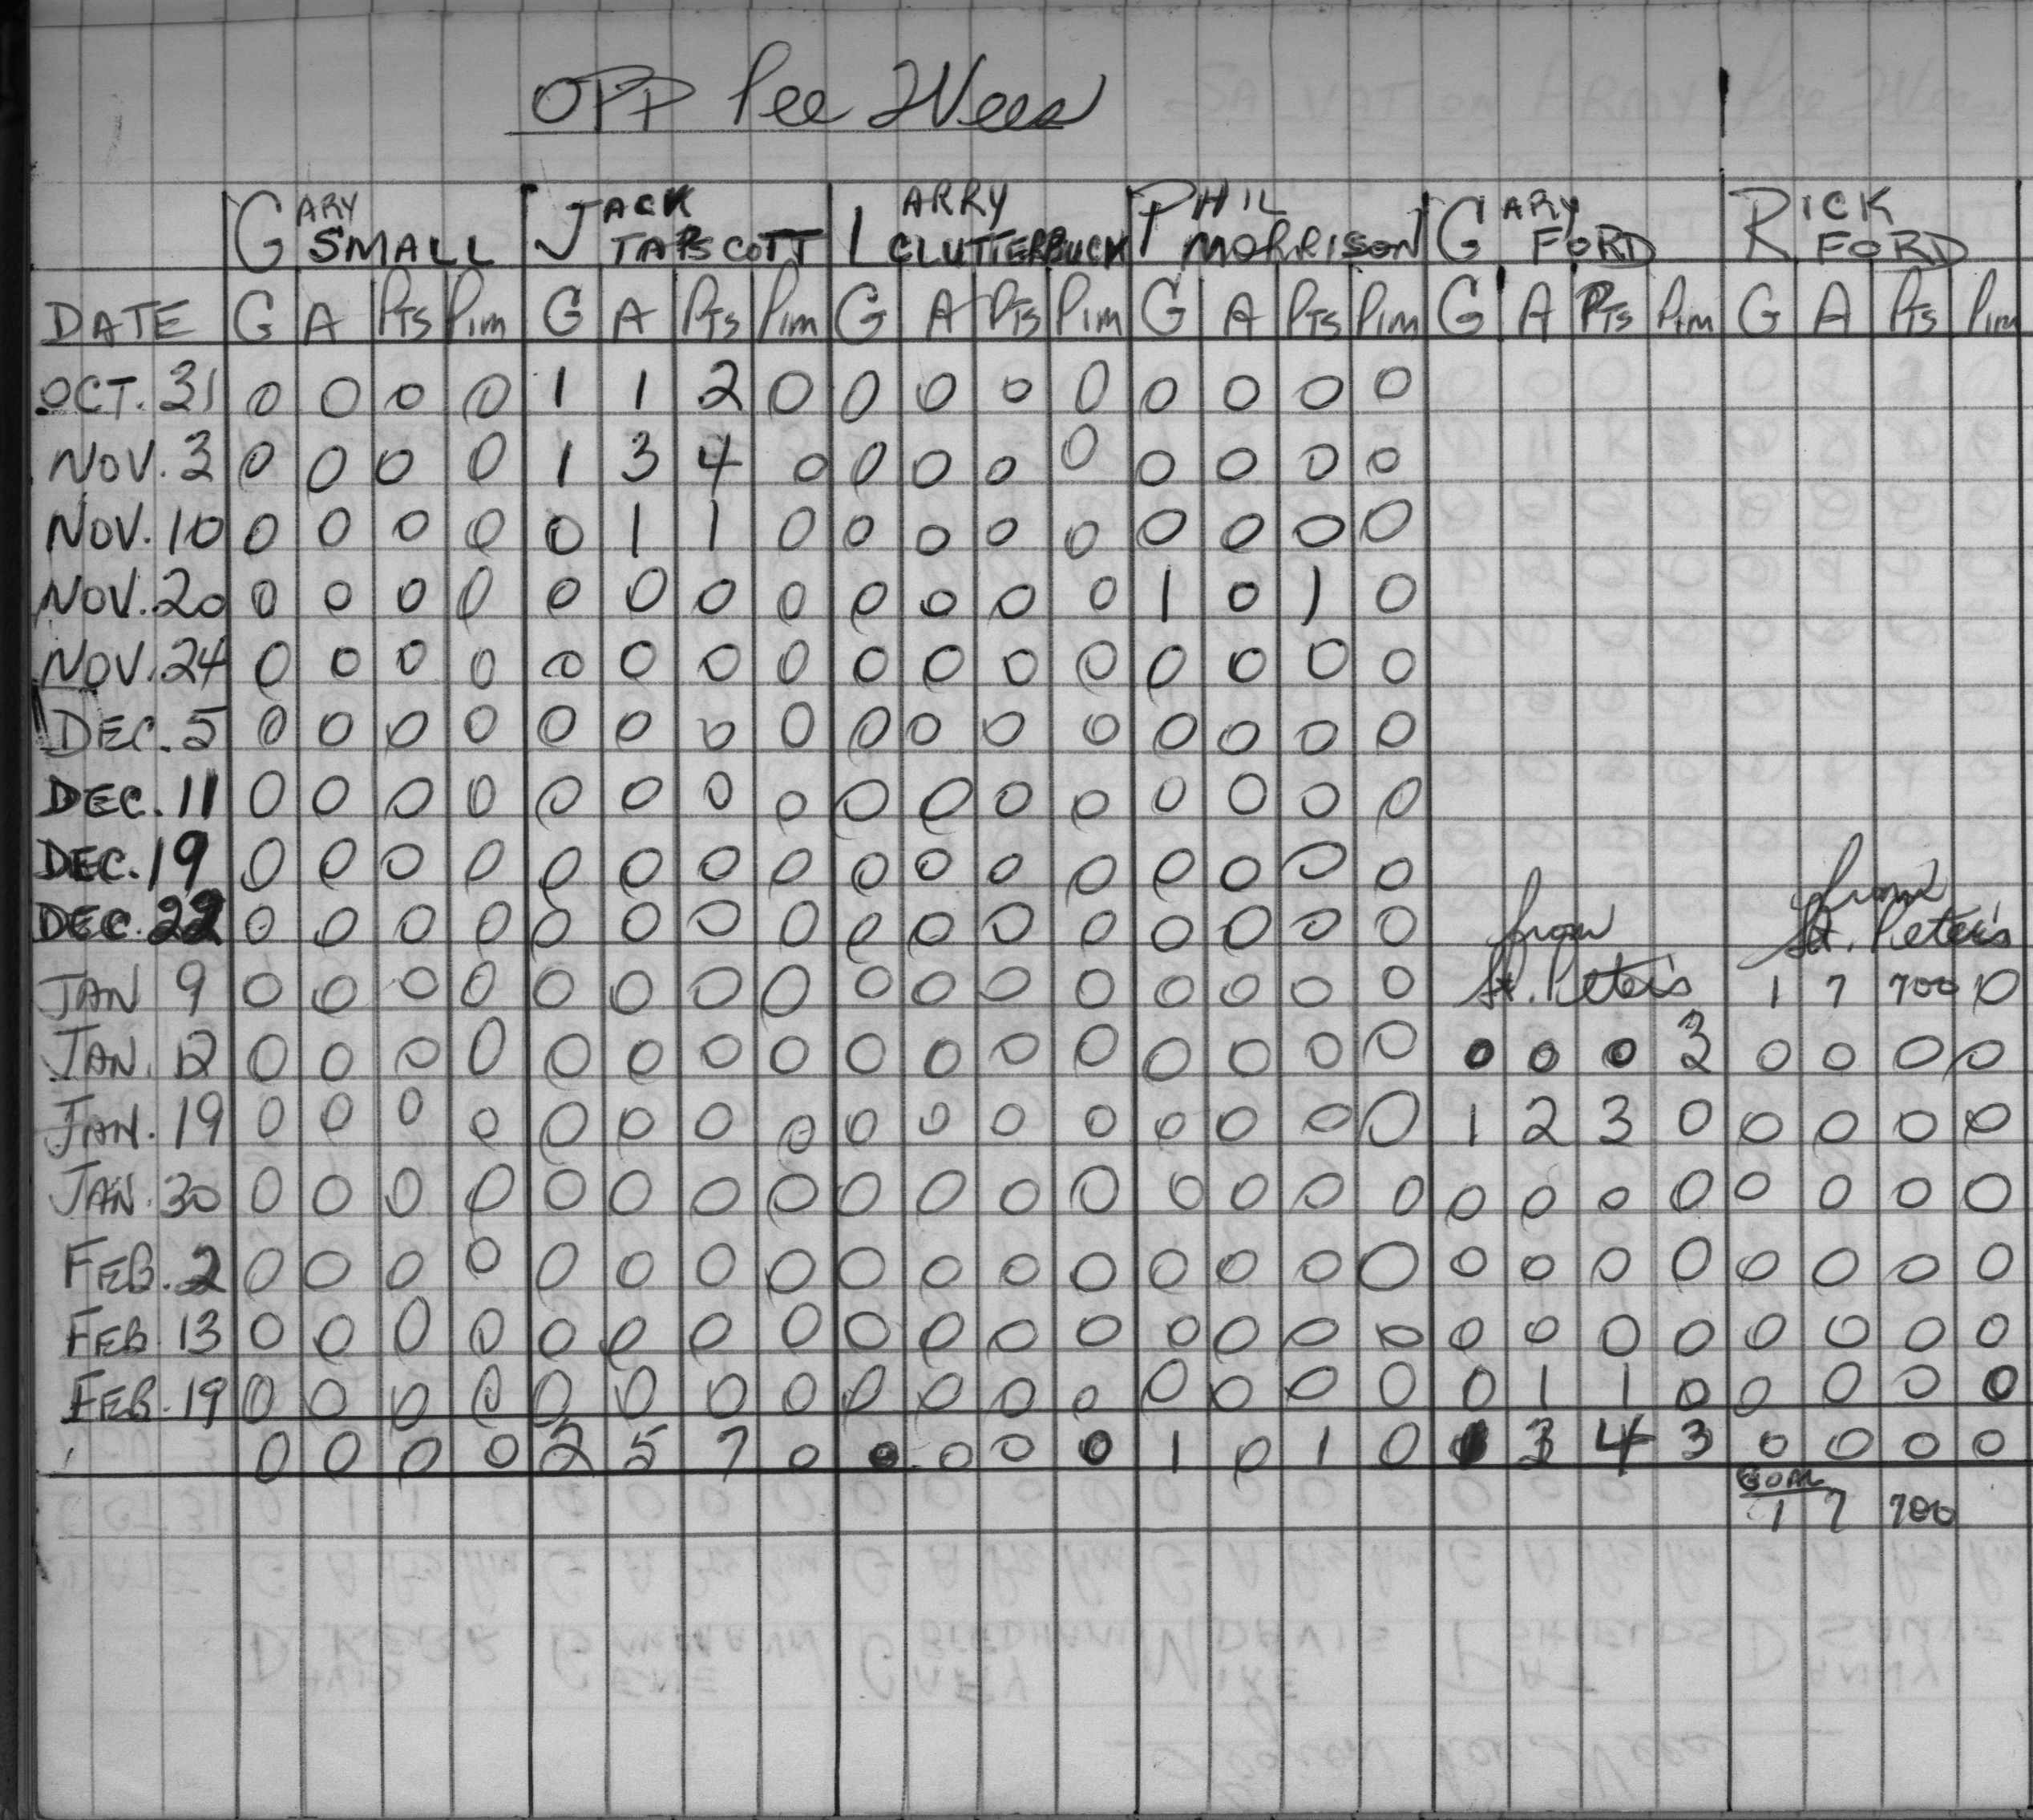 OPP Pee Wees
GARY SMALL JACK TAPSCOTT LARRY CLUTTERBUCK PHIL MORRISON GARY FORD RICK FORD
DATE G A Pts Pim G A Pts Pim G A Pts Pim G A Pts Pim G A Pts Pim G A Pts Pim
OCT. 31 0 0 0 0 1 1 2 0 0 0 0 0 0 0 0 0
NOV. 3 0 0 0 0 1 3 4 0 0 0 0 0 0 0 0 0
NOV. 10 0 0 0 0 0 1 1 0 0 0 0 0 0 0 0 0
NOV. 20 0 0 0 0 0 0 0 0 0 0 0 0 1 0 1 0
NOV. 24 0 0 0 0 0 0 0 0 0 0 0 0 0 0 0 0
DEC. 5 0 0 0 0 0 0 0 0 0 0 0 0 0 0 0 0
DEC. 11 0 0 0 0 0 0 0 0 0 0 0 0 0 0 0 0
DEC. 19 0 0 0 0 0 0 0 0 0 0 0 0 0 0 0 0
DEC. 22 0 0 0 0 0 0 0 0 0 0 0 0 0 0 0 0 from from St. Peter's
JAN 9 0 0 0 0 0 0 0 0 0 0 0 0 0 0 0 0 St. Peter's 1 7 700 0
JAN. 12 0 0 0 0 0 0 0 0 0 0 0 0 0 0 0 0 0 0 0 3 0 0 0 0
JAN. 19 0 0 0 0 0 0 0 0 0 0 0 0 0 0 0 0 1 2 3 0 0 0 0 0
JAN. 30 0 0 0 0 0 0 0 0 0 0 0 0 0 0 0 0 0 0 0 0 0 0 0 0
FEB. 2 0 0 0 0 0 0 0 0 0 0 0 0 0 0 0 0 0 0 0 0 0 0 0 0
FEB. 13 0 0 0 0 0 0 0 0 0 0 0 0 0 0 0 0 0 0 0 0 0 0 0 0
FEB. 19 0 0 0 0 0 0 0 0 0 0 0 0 0 0 0 0 0 1 1 0 0 0 0 0
0 0 0 0 2 5 7 0 0 0 0 0 1 0 1 0 1 3 4 3 0 0 0 0
GOAL
1 7 700